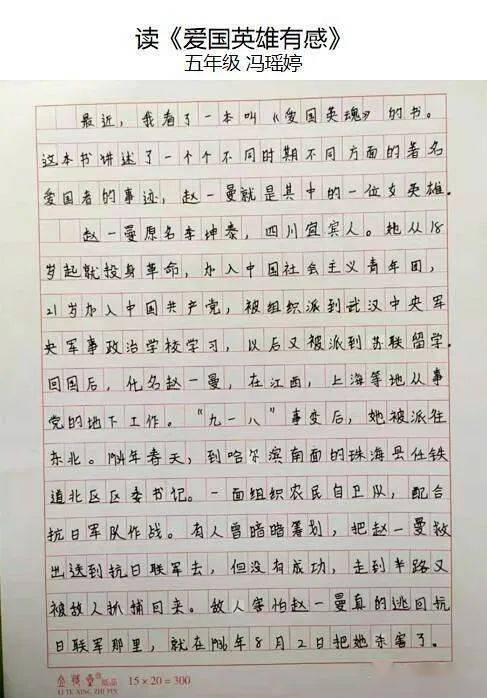 读《爱国英雄有感》
五年级 冯瑶婷
最近，我看了一本叫《爱国英魂》的书。
这本书讲述了一个个不同时期不同方面的著名
爱国者的事迹，赵一曼就是其中的一位女英雄.
赵一曼原名李坤泰，四川宜宾人。她从18
岁起就投身革命，加入中国社会主义青年团，
21岁加入中国共产党，被组织派到武汉中央军
央军事政治学校学习，以后又被派到苏联留学.
回国后，化名赵一曼，在江西，上海等地从事
党的地下工作。"九一八"事变后，她被派往
东北。1934年春天，到哈尔滨南面的珠海县任铁
道北区区委书记。一面组织农民自卫队，配合
抗日军队作战。有人曾暗暗筹划，把赵一曼救
出送到抗日联军去，但没有成功，走到半路又
被敌人抓捕回来。敌人害怕赵一曼真的逃回抗
日联军那里，就在1936年8月2日把她杀害了。
15×20=300
LI TE XING ZHI PIN